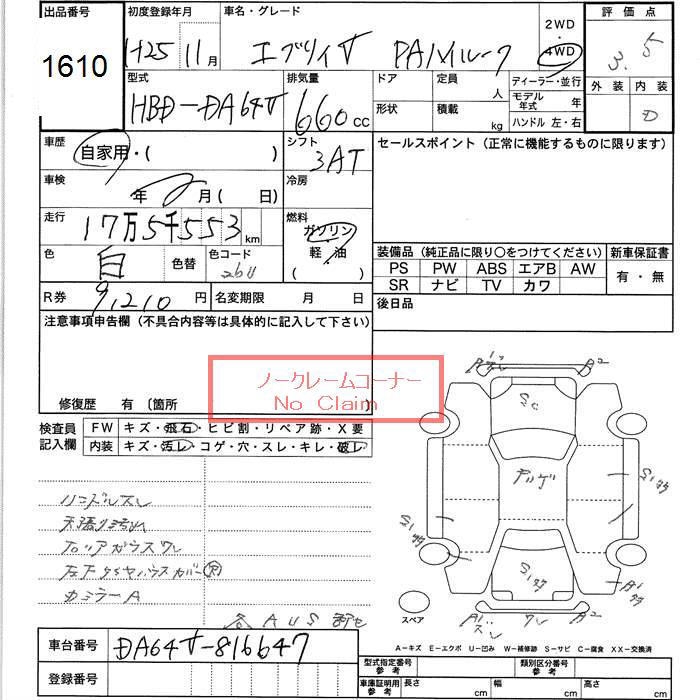 出品番号 初度登録年月 車名・グレード 2WD・4WD 評価点
1610 H25 11月 エブリイV PAハイルーフ 3.5
型式 排気量 ドア 定員 人 ディーラー・並行 外装 内装
HBD-DA64V 660cc 形状 積載 kg モデル年式 年 D
ハンドル 左・右
車歴 自家用・( ) シフト 3AT セールスポイント(正常に機能するものに限ります)
車検 年 月( 日) 冷房
走行 17万5千553km 燃料 ガソリン
軽・油
色 白 色替 色コード 26U 装備品(純正品に限り○をつけてください) 新車保証書
PS PW ABS エアB AW 有・無
SR ナビ TV カワ
R券 9,210円 名変期限 月 日 後日品
注意事項申告欄(不具合内容等は具体的に記入して下さい)
ノークレームコーナー
No Claim
修復歴 有 〔箇所
検査員記入欄 FW キズ・飛石・ヒビ割・リペア跡・X要
内装 キズ・汚レ・コゲ・穴・スレ・キレ・破レ
ハンドルスレ
天張り汚れ
フロアガラスワレ
左下タイヤハウスカバー欠
カミラーA
各AUS部セ
A2
スペア
ワレ A2
A-キズ E-エクボ U-凹み W-補修跡 S-サビ C-腐食 XX-交換済
車台番号 DA64V-816647
登録番号
型式指定番号 参考 類別区分番号 参考
車庫証明用 参考 長さ cm 幅 cm 高さ cm